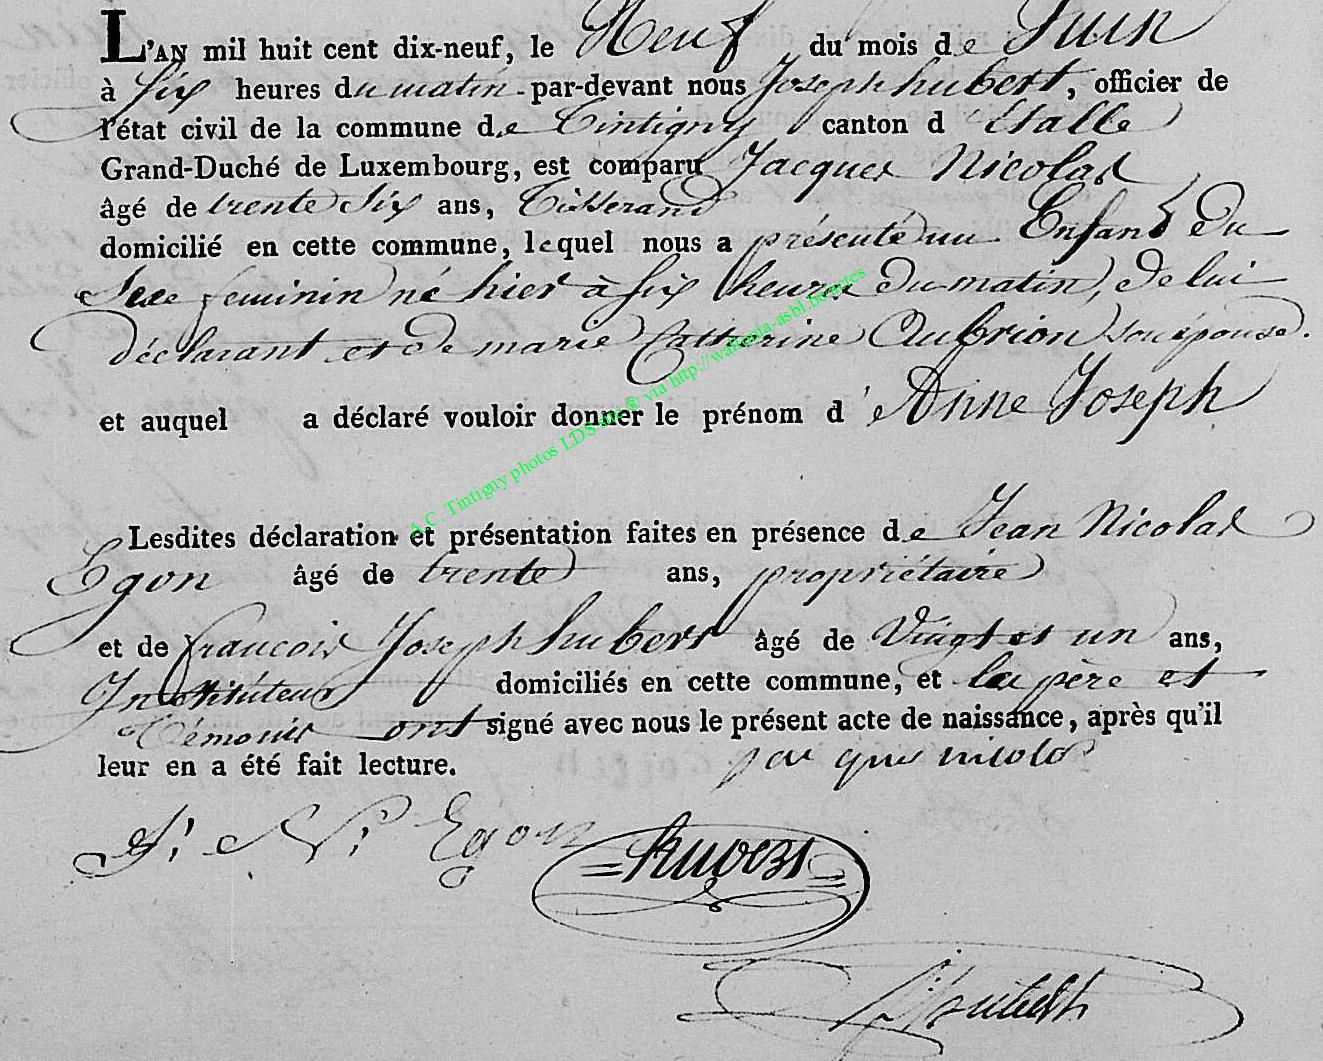 L'AN mil huit cent dix-neuf, le Neuf du mois de Juin
à six heures du matin par-devant nous Joseph hubert, officier de
l'état civil de la commune de Tintigny canton d'Etalle
Grand-Duché de Luxembourg, est comparu Jacques Nicolas
âgé de trente six ans, Tisserand
domicilié en cette commune, lequel nous a présenté un Enfant Du
Sexe feminin né hier à six heures Du matin, De lui
déclarant et De marie Catherine Aubrion son épouse.
et auquel a déclaré vouloir donner le prénom d'e Anne Joseph
A.C. Tintigny photos LDS site ® via http://wallonia-asbl.be/actes
Lesdites déclaration et présentation faites en présence de Jean Nicolas
Egon âgé de trente ans, propriétaire
et de francois Joseph hubert âgé de Vingt et un ans,
Instituteur domiciliés en cette commune, et le père et
Témoins ont signé avec nous le présent acte de naissance, après qu'il
leur en a été fait lecture. jacques nicolas
J. N. Egon
hubert